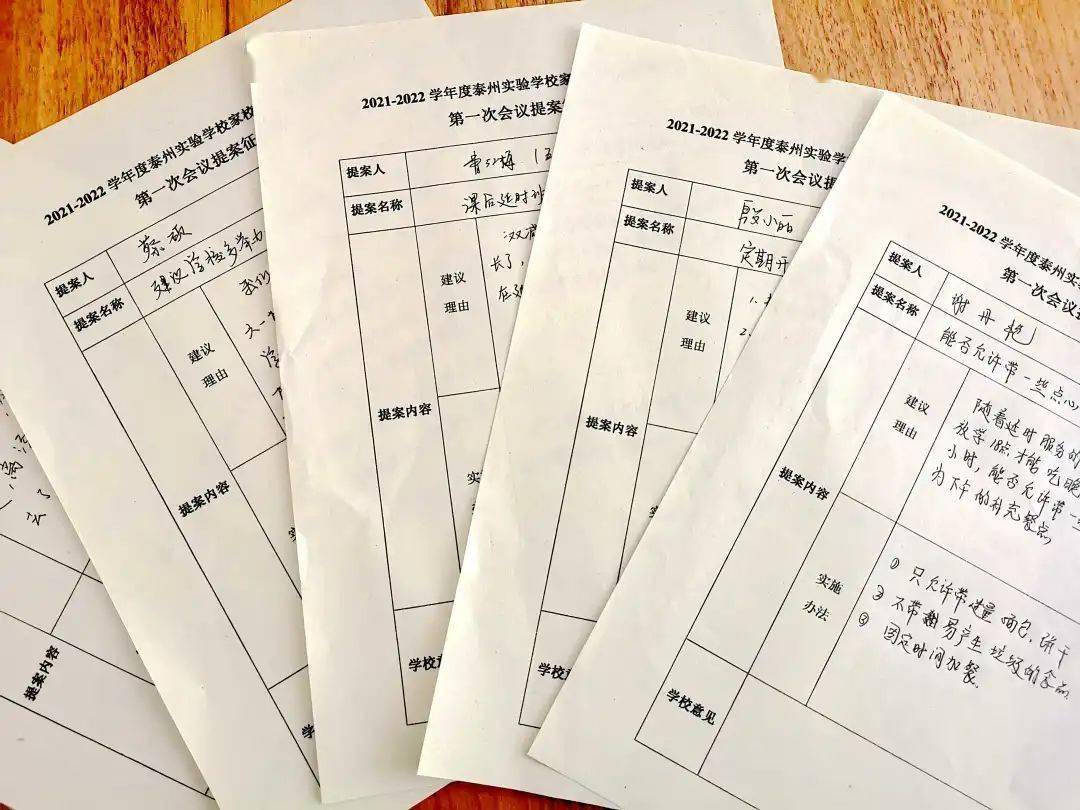 2021-2022 学年度泰州实验学校家校
第一次会议提案征
提案人
蔡硕
提案名称
建议学校多举办
建议
理由
提案内容
提案内容
2021-2022 学年度泰州实验学校家
第一次会议提案
提案人
提案名称
课后延时
建议
理由
双减
长了，
提案内容
实
学校意
2021-2022 学年度泰州实验学校
第一次会议提
提案人
殷小丽
提案名称
定期开
建议
理由
1.
2.
提案内容
实
学校
2021-2022 学年度泰州实
第一次会议
提案人
谢丹艳
提案名称
能否允许带一些点心
建议
理由
随着延时服务的
放学18点才能吃晚
小时，能否允许带一些
为下午的补充餐点
提案内容
实施
办法
① 只允许带适量面包、饼干
② 不带易产生垃圾的食品
③ 固定时间加餐.
学校意见